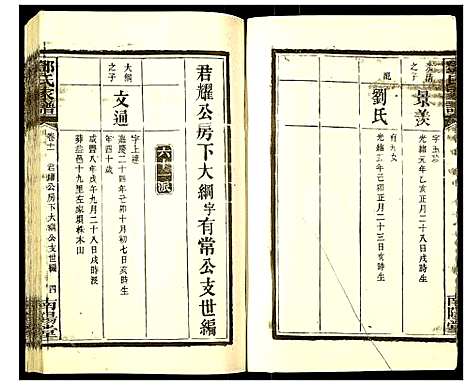 之子
景羨
字玉珍
光緒元年乙亥正月二十八日戌時生
配
劉氏
有九女
光緒五年己卯正月二十三日亥時生
南陽堂
君耀公房下大綱字有常公支世編
六
派
大綱
之子
文通
字上達
嘉慶二十四年己卯十月初七日亥時生
年四十歲
咸豐八年戊午九月二十八日戌時沒
葬益邑十九里左家塅株木山
鄧氏家譜
卷十一
君耀公房下大綱公支世編
四
南陽堂